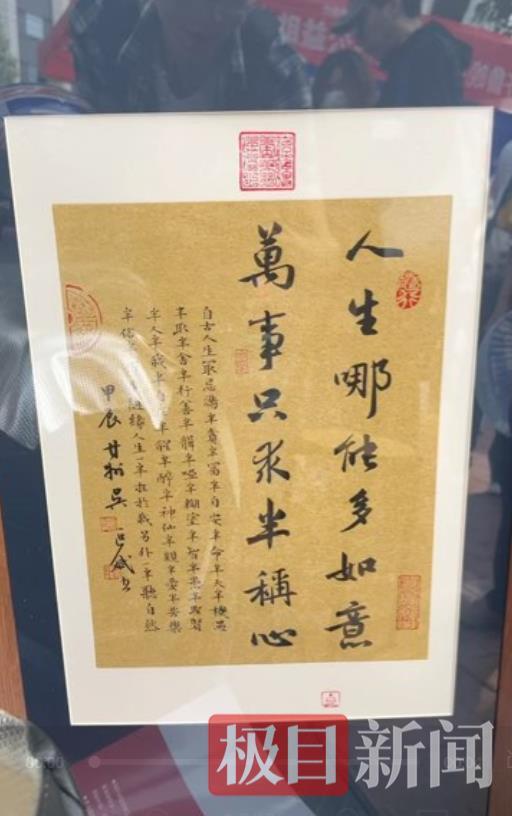 人生哪能多如意
萬事只求半稱心
自古人生最忌滿半貧半富半自安半命半天半機遇
半取半舍半行善半聾半啞半糊塗半智半愚半聖賢
半人半我半自半醒半醉半神仙半親半愛半苦樂
半俗隨緣人生一半在於我另外一半聽自然
甲辰 吳
极目新闻
00:00